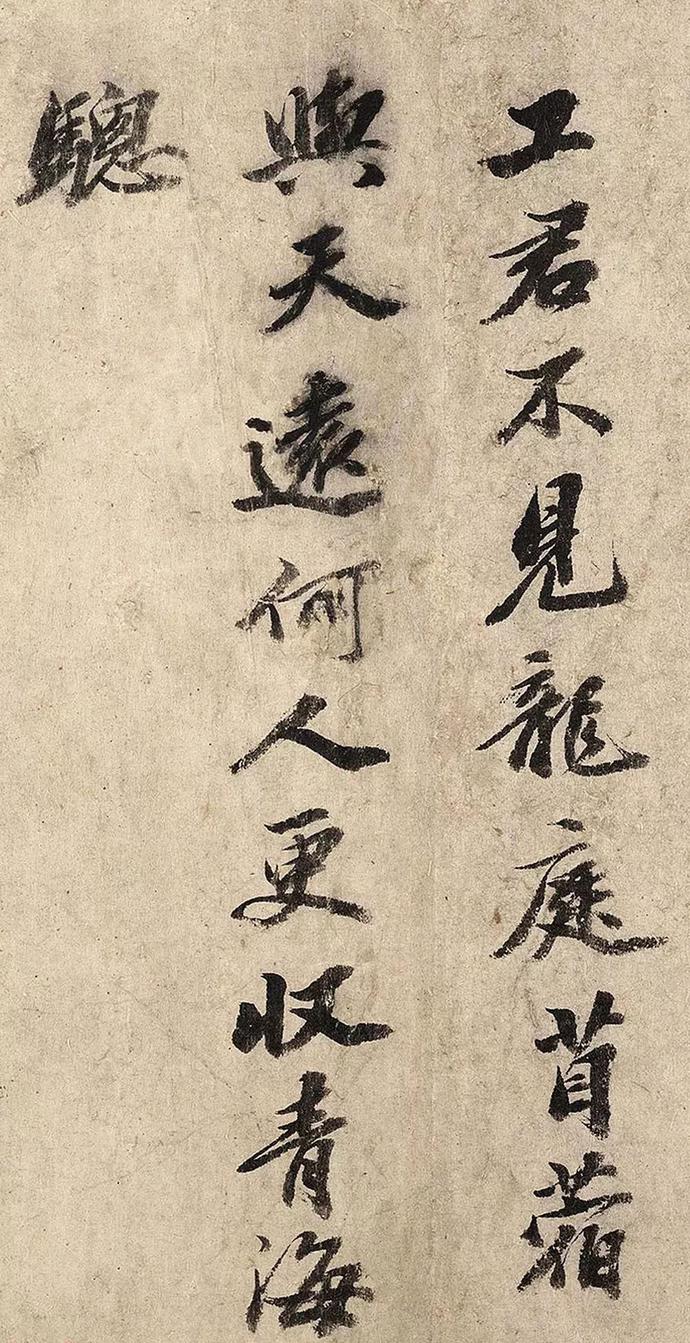 工君不見龍庭苜蓿
與天遠何人更收青海
驄